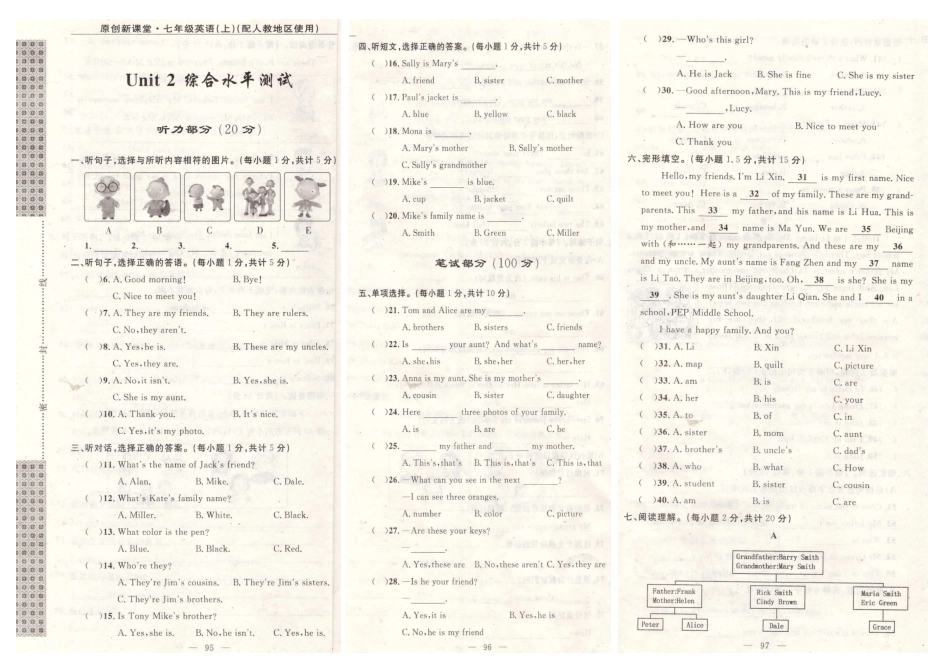 原创新课堂·七年级英语(上)(配人教地区使用)
Unit 2 综合水平测试
听力部分(20分)
一、听句子,选择与所听内容相符的图片。(每小题1分,共计5分)
A B C D E
1.____ 2.____ 3.____ 4.____ 5.____
二、听句子,选择正确的答语。(每小题1分,共计5分)
( )6. A. Good morning! B. Bye!
C. Nice to meet you!
( )7. A. They are my friends. B. They are rulers.
C. No,they aren't.
( )8. A. Yes,he is. B. These are my uncles.
C. Yes,they are.
( )9. A. No,it isn't. B. Yes,she is.
C. She is my aunt.
( )10. A. Thank you. B. It's nice.
C. Yes,it's my photo.
三、听对话,选择正确的答案。(每小题1分,共计5分)
( )11. What's the name of Jack's friend?
A. Alan. B. Mike. C. Dale.
( )12. What's Kate's family name?
A. Miller. B. White. C. Black.
( )13. What color is the pen?
A. Blue. B. Black. C. Red.
( )14. Who're they?
A. They're Jim's cousins. B. They're Jim's sisters.
C. They're Jim's brothers.
( )15. Is Tony Mike's brother?
A. Yes,she is. B. No,he isn't. C. Yes,he is.
— 95 —
线
封
密
四、听短文,选择正确的答案。(每小题1分,共计5分)
( )16. Sally is Mary's ______.
A. friend B. sister C. mother
( )17. Paul's jacket is ______.
A. blue B. yellow C. black
( )18. Mona is ______.
A. Mary's mother B. Sally's mother
C. Sally's grandmother
( )19. Mike's ______ is blue.
A. cup B. jacket C. quilt
( )20. Mike's family name is ______.
A. Smith B. Green C. Miller
笔试部分(100分)
五、单项选择。(每小题1分,共计10分)
( )21. Tom and Alice are my ______.
A. brothers B. sisters C. friends
( )22. Is ______ your aunt? And what's ______ name?
A. she,his B. she,her C. her,her
( )23. Anna is my aunt. She is my mother's ______.
A. cousin B. sister C. daughter
( )24. Here ______ three photos of your family.
A. is B. are C. be
( )25. ______ my father and ______ my mother.
A. This's,that's B. This is,that's C. This is,that
( )26. —What can you see in the next ______?
—I can see three oranges.
A. number B. color C. picture
( )27. —Are these your keys?
—______.
A. Yes,these are B. No,these aren't C. Yes,they are
( )28. —Is he your friend?
—______.
A. Yes,it is B. Yes,he is
C. No,he is my friend
— 96 —
( )29. —Who's this girl?
—______.
A. He is Jack B. She is fine C. She is my sister
( )30. —Good afternoon,Mary. This is my friend,Lucy.
—______,Lucy.
A. How are you B. Nice to meet you
C. Thank you
六、完形填空。(每小题1.5分,共计15分)
Hello,my friends. I'm Li Xin. 31 is my first name. Nice
to meet you! Here is a 32 of my family. These are my grand-
parents. This 33 my father,and his name is Li Hua. This is
my mother,and 34 name is Ma Yun. We are 35 Beijing
with (和……一起) my grandparents. And these are my 36
and my uncle. My aunt's name is Fang Zhen and my 37 name
is Li Tao. They are in Beijing,too. Oh, 38 is she? She is my
39 . She is my aunt's daughter Li Qian. She and I 40 in a
school,PEP Middle School.
I have a happy family. And you?
( )31. A. Li B. Xin C. Li Xin
( )32. A. map B. quilt C. picture
( )33. A. am B. is C. are
( )34. A. her B. his C. your
( )35. A. to B. of C. in
( )36. A. sister B. mom C. aunt
( )37. A. brother's B. uncle's C. dad's
( )38. A. who B. what C. How
( )39. A. student B. sister C. cousin
( )40. A. am B. is C. are
七、阅读理解。(每小题2分,共计20分)
A
Grandfather:Barry Smith
Grandmother:Mary Smith
Father:Frank
Mother:Helen
Rick Smith
Cindy Brown
Maria Smith
Eric Green
Peter Alice Dale Grace
— 97 —